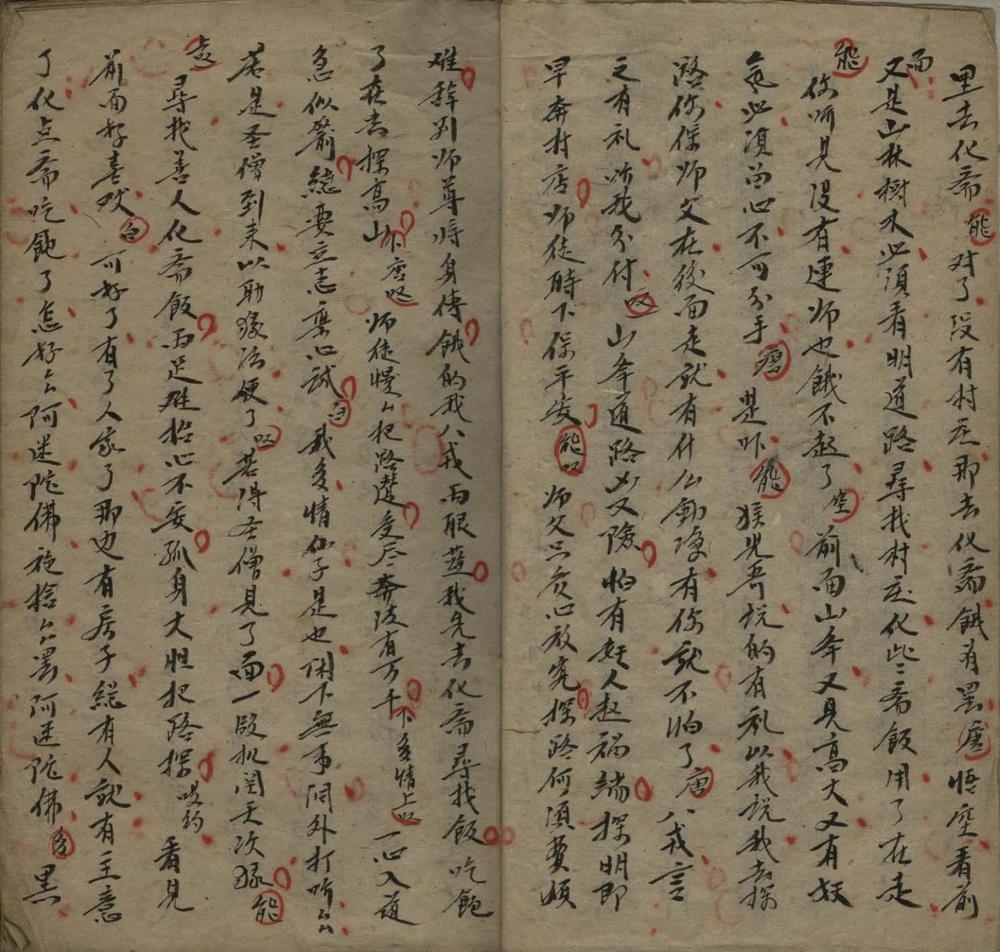 里去化斋 能 对了没有村庄那去化斋餓有黑 唐 悟空看前
面又是山林樹木必須看明道路尋找村庄化些斋飯用了在走
能 你听見没有連师也餓不起了 空 前面山牟又見高大又有妖
氣必須留心不可分手 唐 是咋 能 猴兄吾説的有礼以我説我去探
路你保师父在後面走就有什么動凈有你就不怕了 唐 八戒言
之有礼听我分付 叹 山牟道路凶又險怕有妖人起禍端探明即
早奔村店师徒時下保平安 能叹 师父只管心放寬探路何須費煩
难辞别师尊将身傳餓的我八戒两眼藍我先去化斋尋找飯吃飽
了在去探高山 下唐叹 师徒慢么把路遭受尽奔波有万千 下多情上叹 一心入道
急似箭總要立志棄心誠 白 我多情仙子是也闲下無事洞外打听么
若是圣僧到来以助緣法便了 叹 若得圣僧見了面一段机関天次緣 能
叹 尋找善人化斋飯两足难抬心不安孤身大胆把路探 哎约 看見
前面好喜欢 白 可好了有了人家了那边有房子總有人就有主意
了化点斋吃飽了怎好么阿迷陀佛施捨么罢阿迷陀佛 多 黑